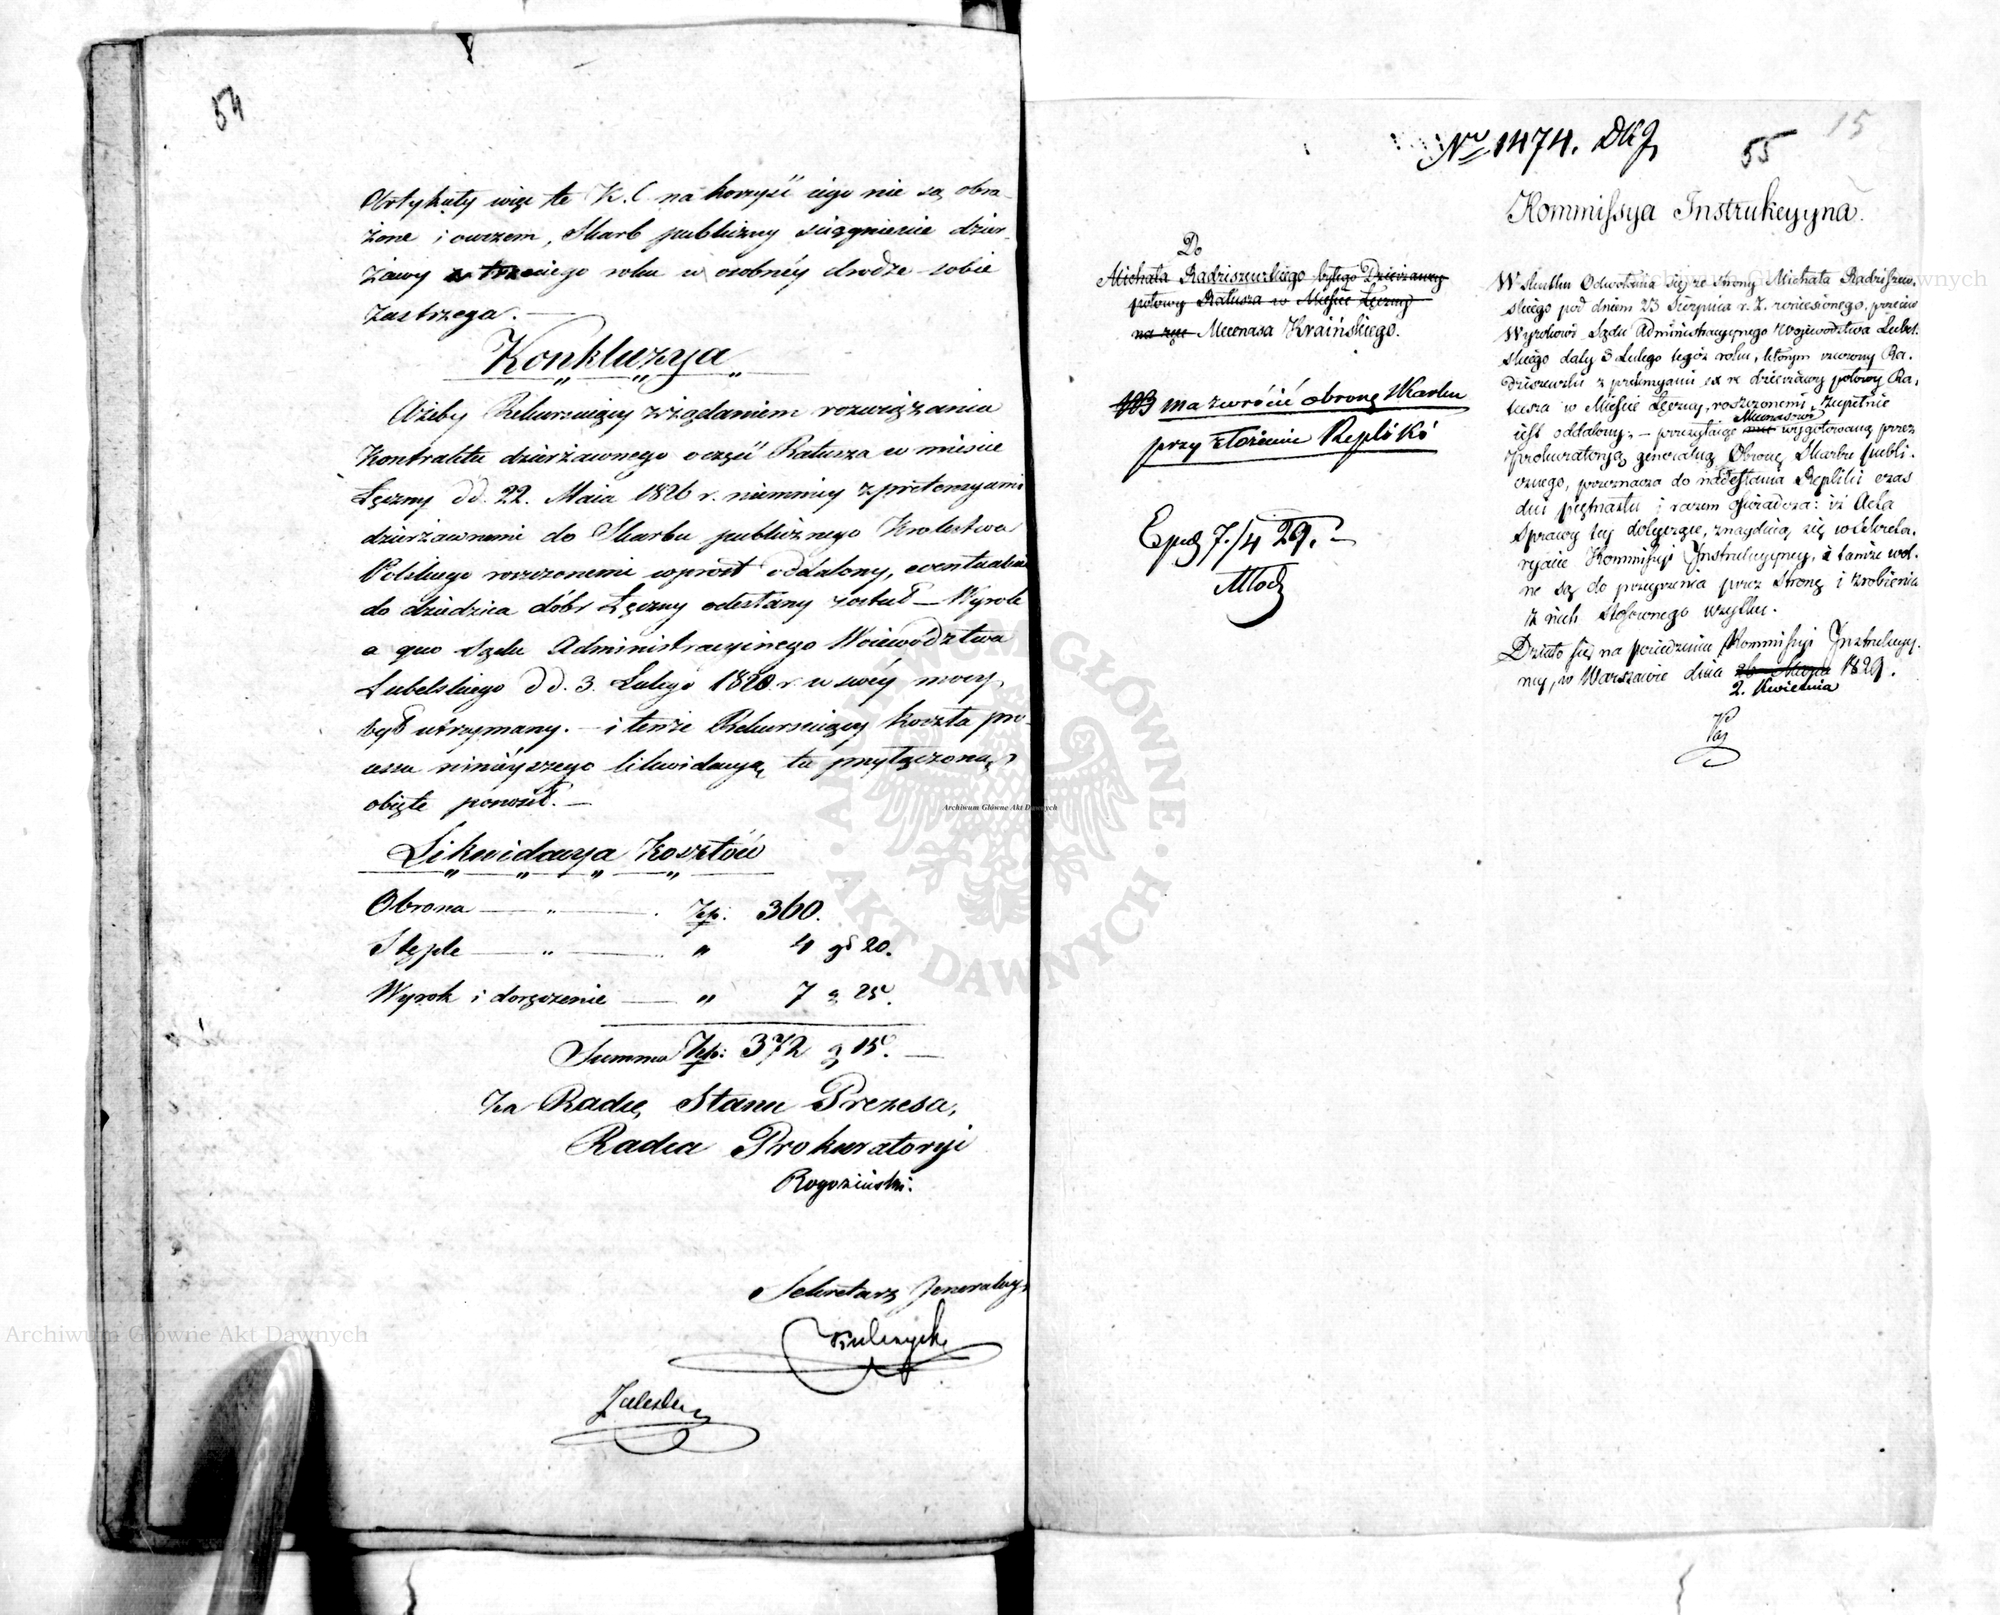 54
Artykuły więc te K.C. na korzyść iego nie są obra-
żone i owszem, Skarb publiczny ściągnienie dzier-
żawy z trzeciego roku w osobnéy drodze sobie
zastrzega. —
Konkluzya
Ażeby Rekursuiący z żądaniem rozwiązania
Kontraktu dzierżawnego o część Ratusza w mieście
Łęczny dd. 22. Maia 1826 r. niemniey z pretensyami
dzierżawnemi do Skarbu publicznego Królestwa
Polskiego roszczonemi wprost oddalony,
do dziedzica dóbr Łęczny odesłany został — Wyrok
a quo Sądu Administracyinego Woiewództwa
Lubelskiego dd. 3. Lutego 1828. r. w swéy mocy
był utrzymany. — i tenże Rekursuiący koszta pro-
cessu ninieyszego likwidacyą tu przyłączoną,
obięte ponosił. —
Likwidacya Kosztów
Obrona — „ — Złp: 360.
Stęple — „ — „ 4 gr 20.
Wyrok i doręczenie — „ 7 g 25.
Summa Złp: 372 g 15. —
Za Radcę Stanu Prezesa,
Radca Prokuratoryi
Rogoziński.
Sekretarz Jeneralny
Zaleski
Nro 1474. DKJ
55
15
Kommissya Instrukcyyna.
Do
Michała Radziszewskiego byłego Dzierżawcy
połowy Ratusza w Mieście Łęczny
na ręce Mecenasa Kraińskiego.
NB ma zwrócić obronę Skarbu
przy złożeniu Repliki
Exp. 7./4 29. —
Młod
W skutku Odwołania się ze strony Michała Radziszew-
skiego pod dniem 23 Sierpnia r. z. zaniesionego, przeciw
Wyrokowi Sądu Administracyynego Województwa Lubel-
skiego daty 3 Lutego tegoż roku, którym rzeczony Ra-
dziszewski z pretensyami ex re dzierżawy połowy Ra-
tusza w Mieście Łęczny, roszczonemi, zupełnie
iest oddalony; — przesyłaiąc Mecenasowi wygotowaną przez
Prokuratoryą generalną Obronę Skarbu publi-
cznego, przeznacza do nadesłania Repliki czas
dni piętnastu i razem oświadcza: iż Acta
Sprawy tey dotyczące, znayduią się w Sekreta-
ryacie Kommissyi Instrukcyyney, i tamże wol-
ne są do przeyrzenia przez Stronę i zrobienia
z nich stosownego użytku.
Działo się na posiedzeniu Kommissyi Instrukcyy-
ney, w Warszawie dnia 26 Marca 1829.
2. Kwietnia
Archiwum Główne Akt Dawnych
Archiwum Główne Akt Dawnych
Archiwum Główne Akt Dawnych
ARCHIWUM GŁÓWNE · AKT DAWNYCH ·